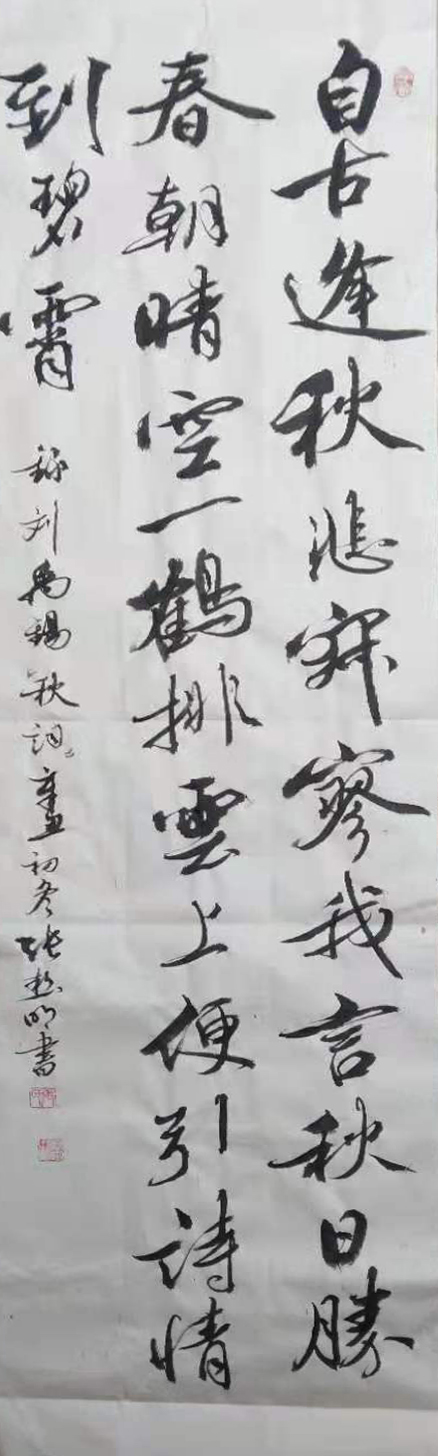 自古逢秋悲寂寥我言秋日勝
春朝晴空一鶴排雲上便引詩情
到碧霄
錄刘禹錫秋詞辛丑初冬張 明書